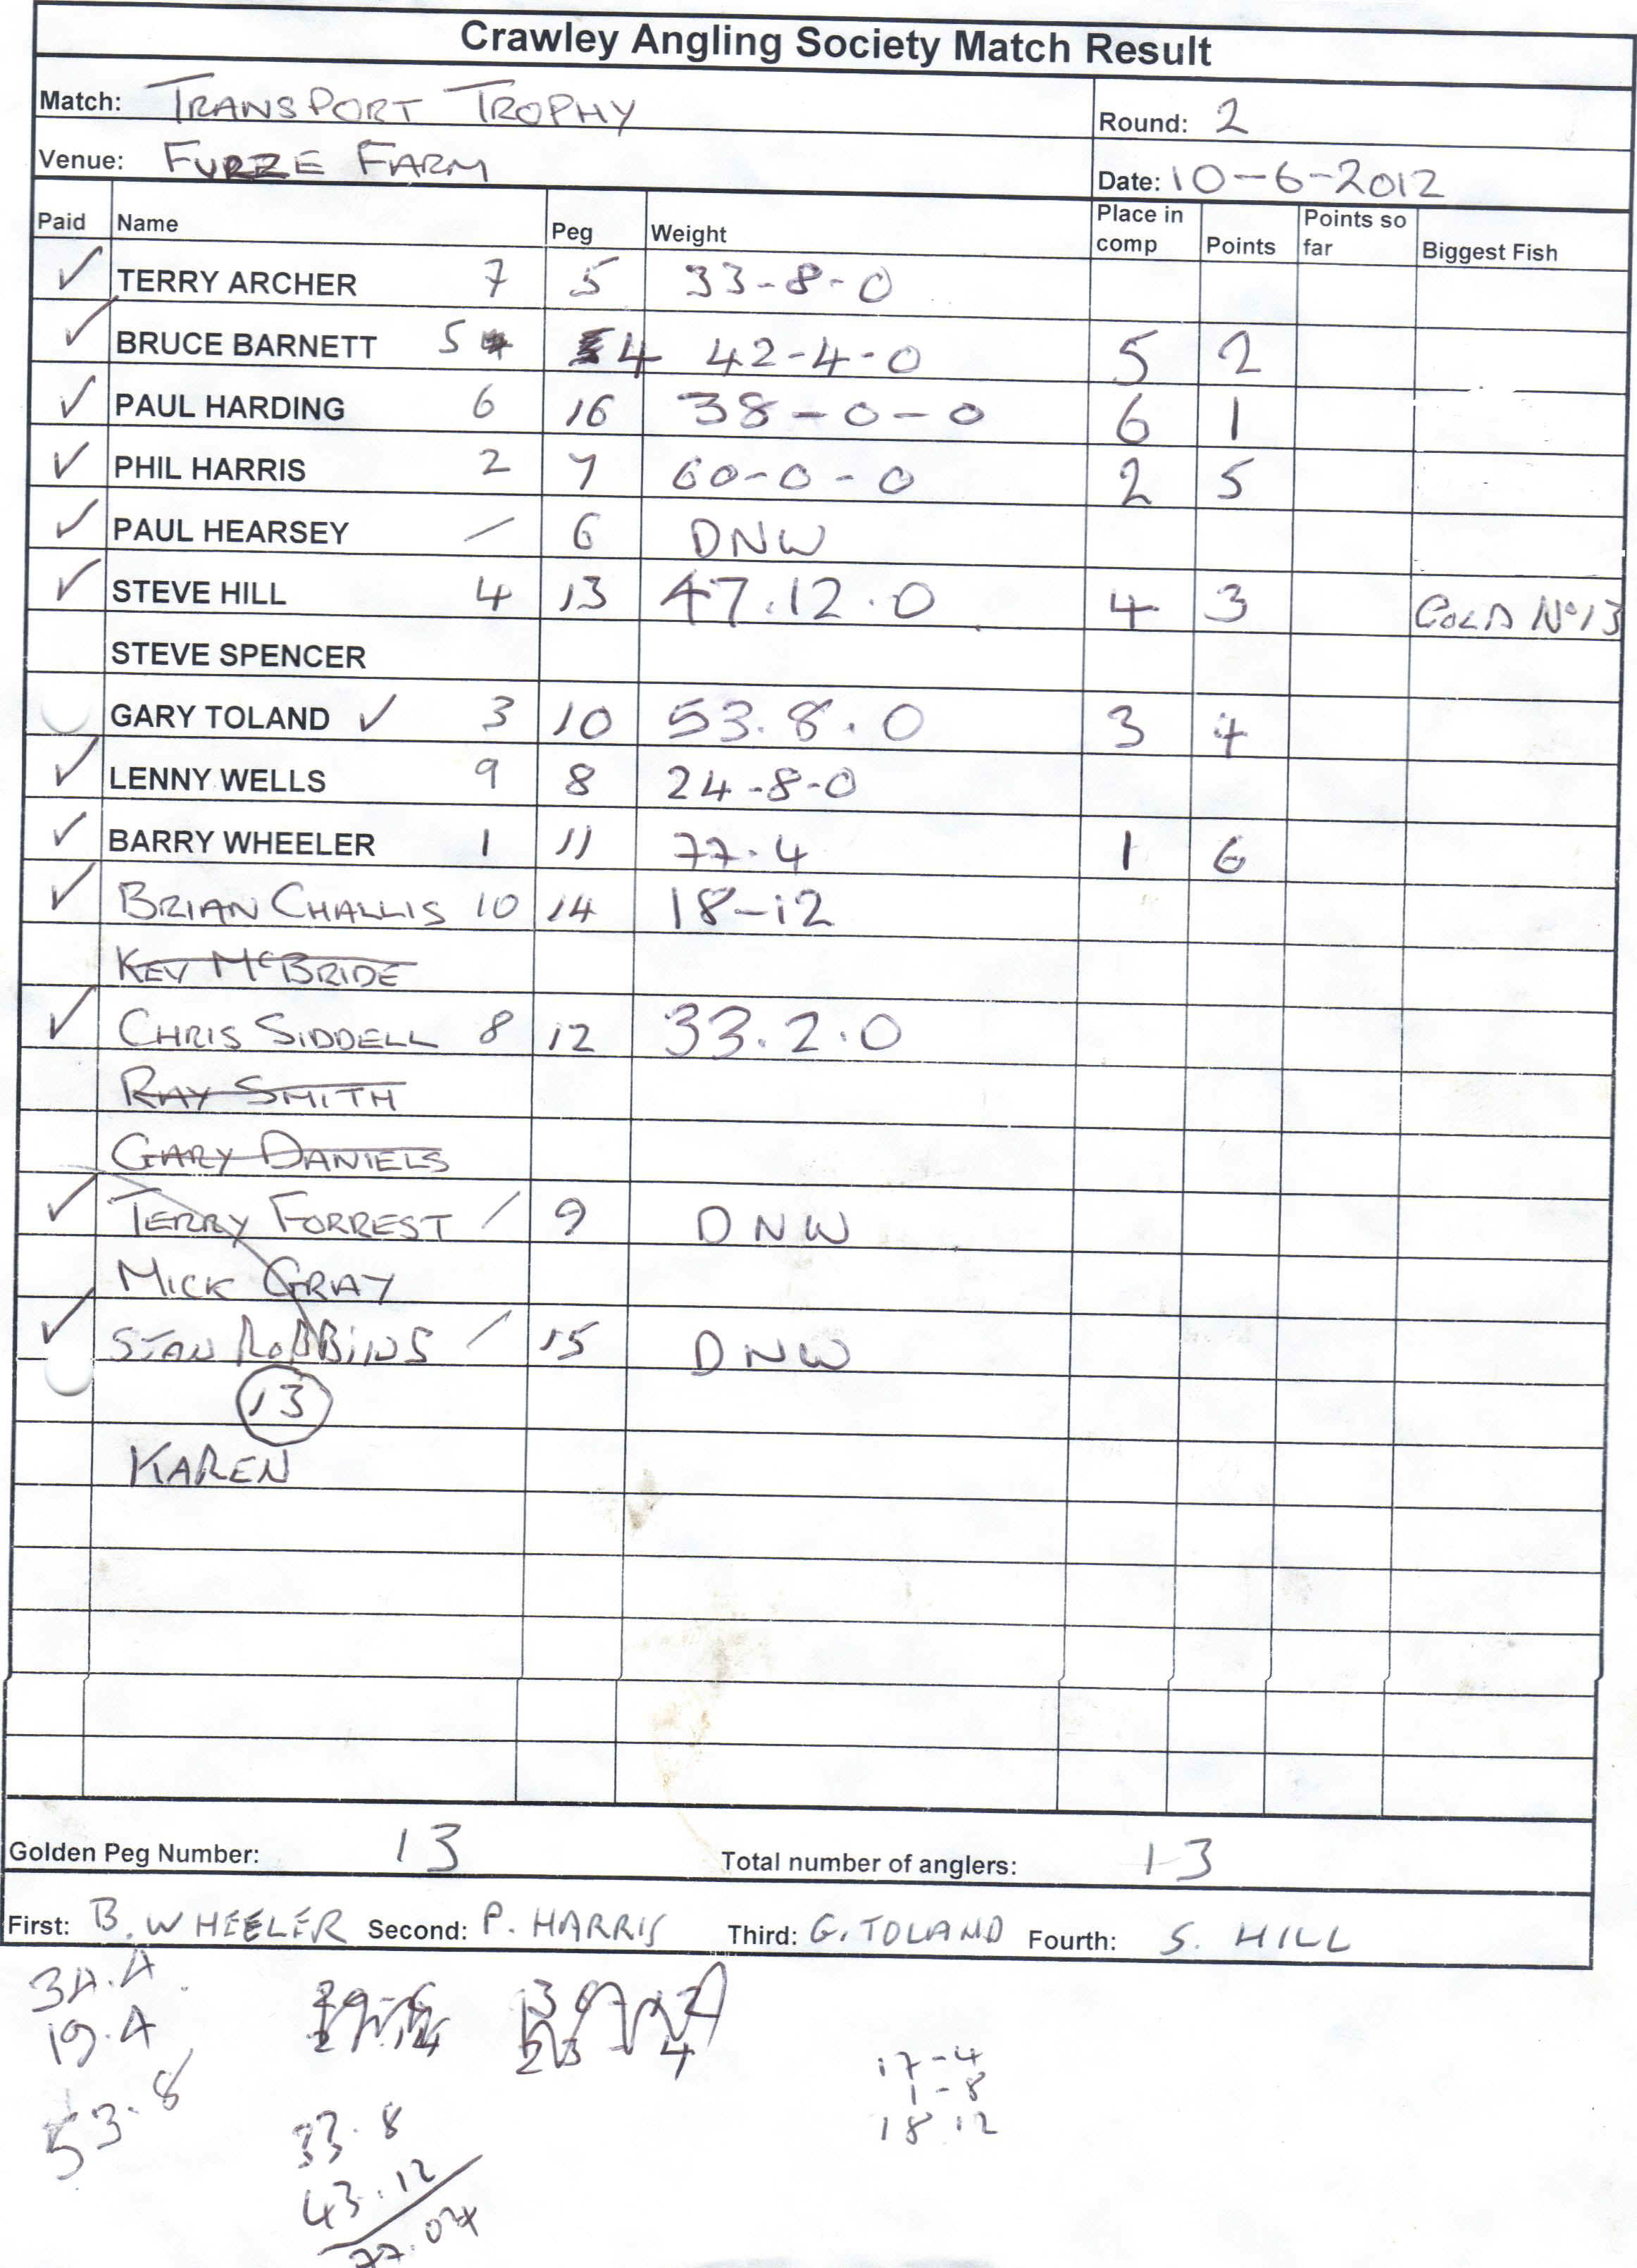 Crawley Angling Society Match Result
Match: TRANSPORT TROPHY Round: 2
Venue: FURZE FARM Date: 10-6-2012
Paid Name Peg Weight Place in comp Points Points so far Biggest Fish
✓ TERRY ARCHER 7 5 33-8-0
✓ BRUCE BARNETT 5 4 42-4-0 5 2
✓ PAUL HARDING 6 16 38-0-0 6 1
✓ PHIL HARRIS 2 7 60-0-0 2 5
✓ PAUL HEARSEY / 6 DNW
✓ STEVE HILL 4 13 47.12.0 4 3 GOLD Nº13
STEVE SPENCER
GARY TOLAND ✓ 3 10 53.8.0 3 4
✓ LENNY WELLS 9 8 24-8-0
✓ BARRY WHEELER 1 11 77.4 1 6
✓ BRIAN CHALLIS 10 14 18-12
KEV McBRIDE
✓ CHRIS SIDDELL 8 12 33.2.0
RAY SMITH
GARY DANIELS
✓ TERRY FORREST / 9 DNW
MICK GRAY
✓ STAN ROBBINS / 15 DNW
13
KAREN
Golden Peg Number: 13 Total number of anglers: 13
First: B. WHEELER Second: P. HARRIS Third: G. TOLAND Fourth: S. HILL
34.4
19.4
53.8
33.8
43.12
17-4
1-8
18.12